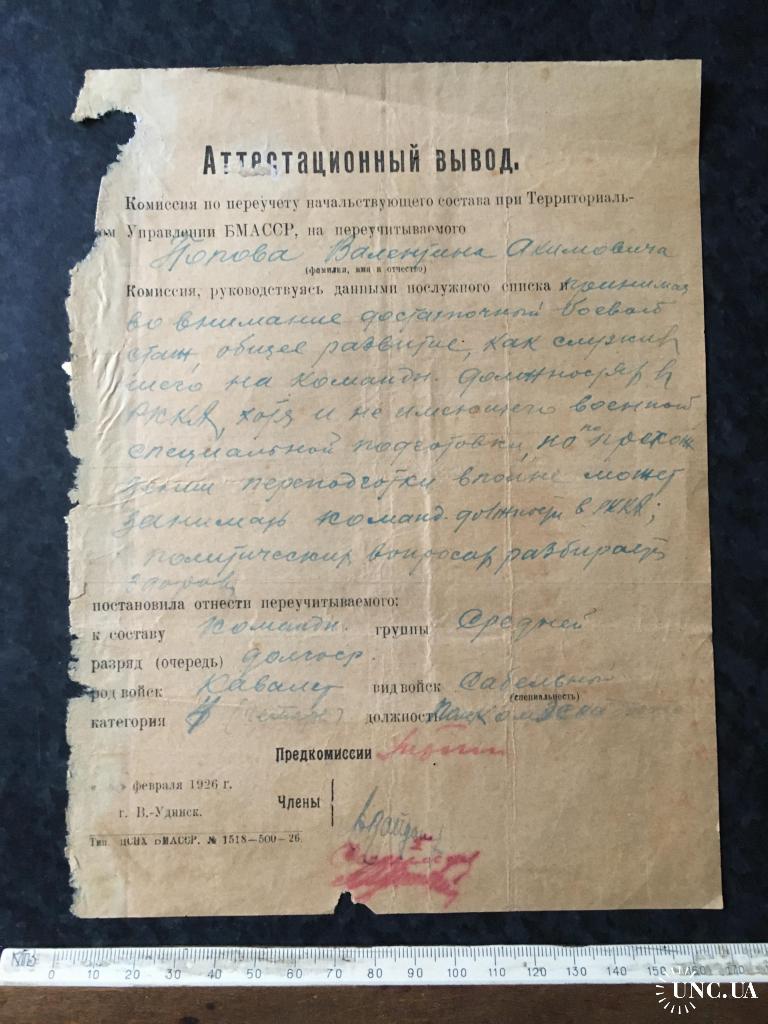 Аттестационный вывод.
Комиссия по переучету начальствующего состава при Территориаль-
ом Управлении БМАССР, на переучитываемого
Попова Валентина Акимовича
(фамилия, имя и отчество)
Комиссия, руководствуясь данными послужного списка и принимая
во внимание достаточный боевой
стаж, общее развитие, как служив
шего на командн. должностях в
РККА, хотя и не имеющего военной
специальной подготовки, но по прохож
переподготки вполне может
занимать команд. должности в РККА;
политических вопросах разбирается
здорово
постановила отнести переучитываемого:
к составу командн. группы Средней
разряд (очередь) долгоср.
род войск Кавалер вид войск Сабельный
(специальность)
категория должность
Предкомиссии
февраля 1926 г.
г. В.-Удинск.
Члены
Тип. ЦСНХ БМАССР. № 1518—500—26.
0 10 20 30 40 50 60 70 80 90 100 110 120 130 140 150 160 170
UNC.UA